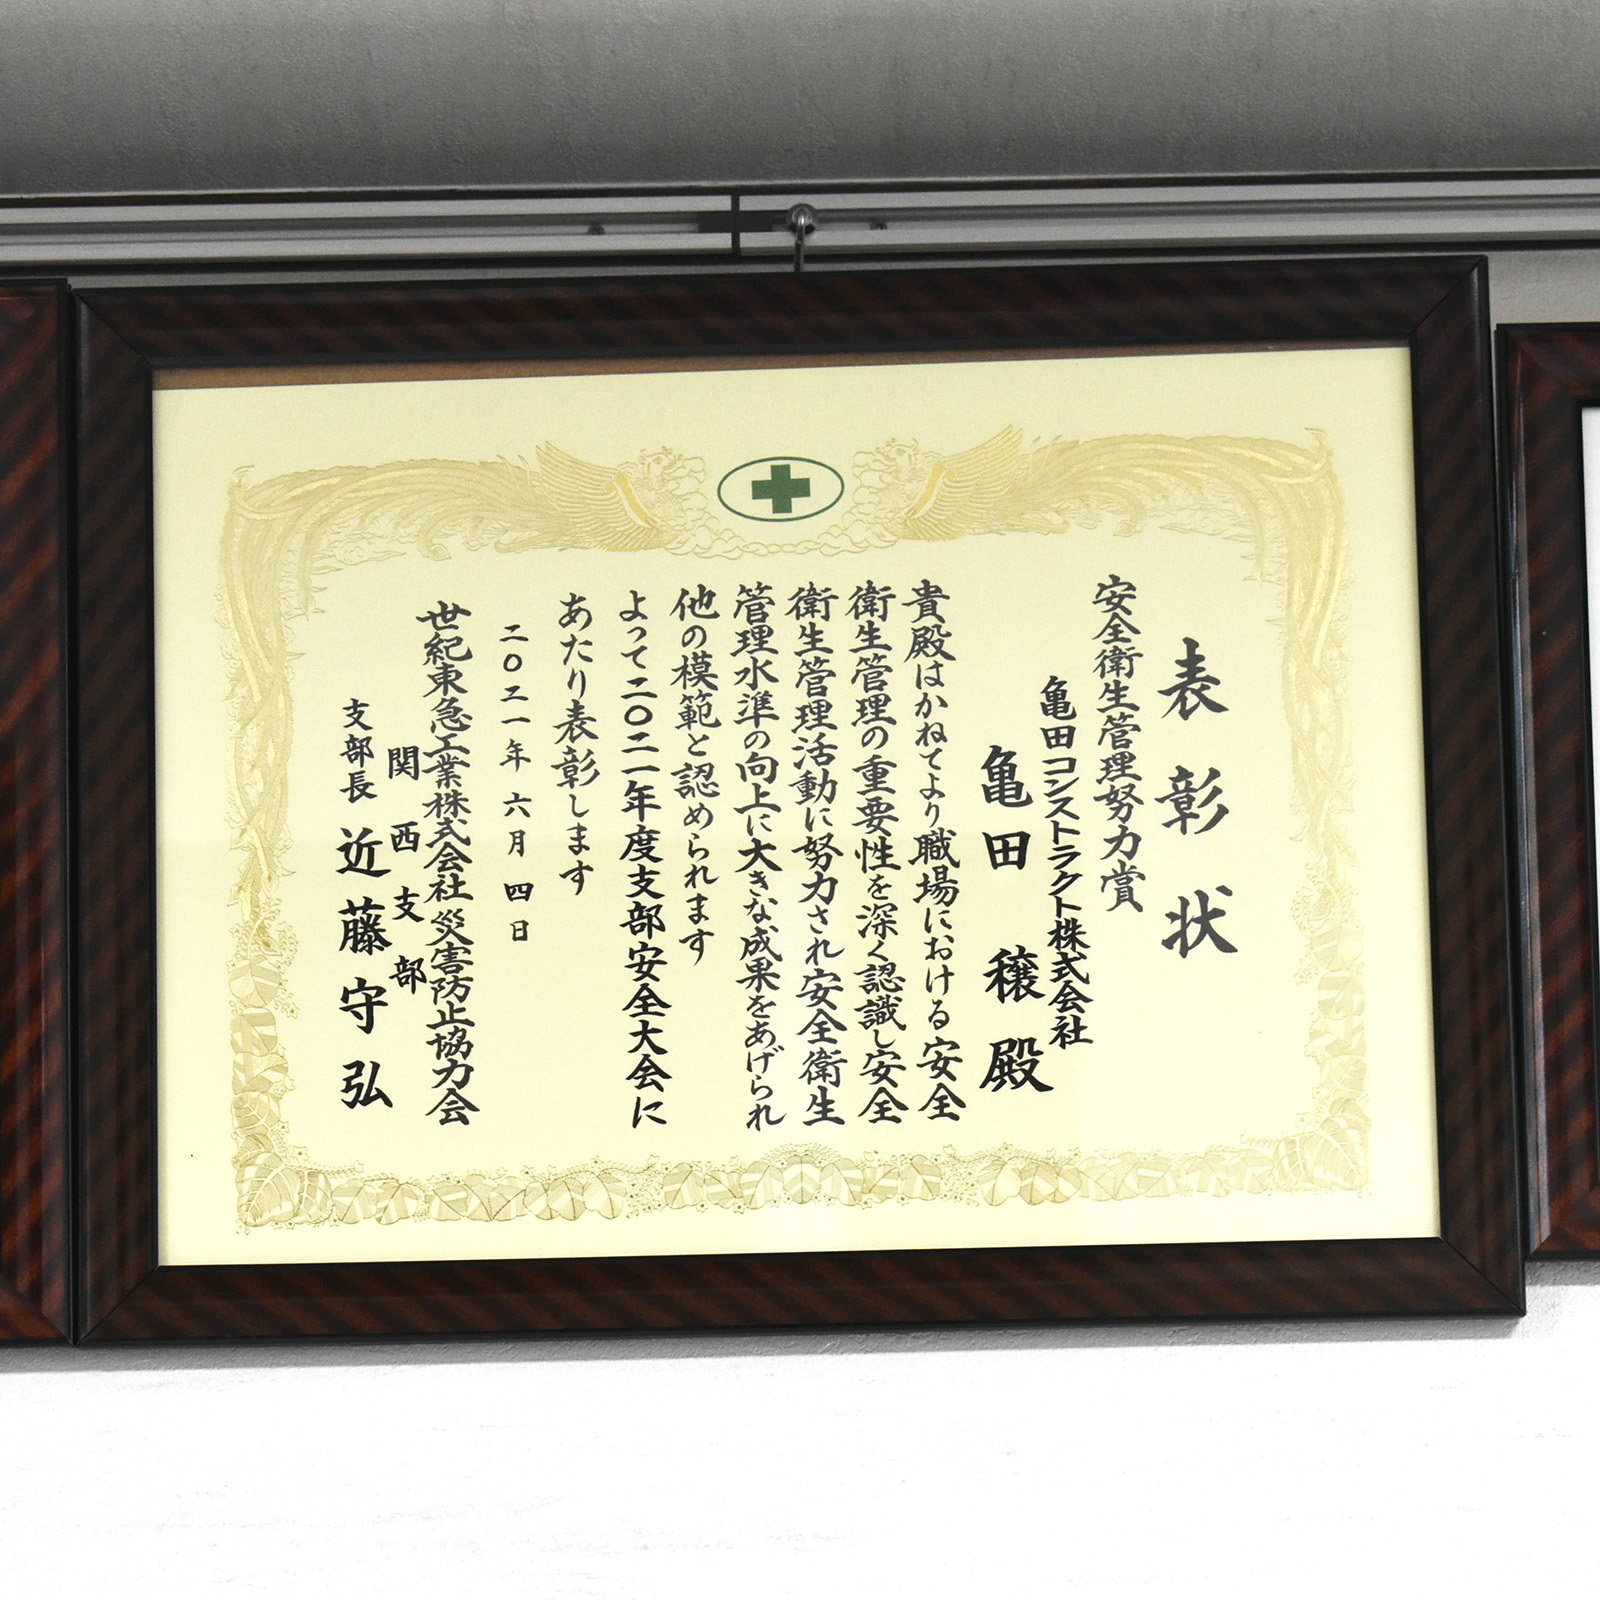 表彰状
安全衛生管理努力賞
亀田コンストラクト株式会社
亀田 穣 殿
貴殿はかねてより職場における安全
衛生管理の重要性を深く認識し安全
衛生管理活動に努力され安全衛生
管理水準の向上に大きな成果をあげられ
他の模範と認められます
よって二〇二一年度支部安全大会に
あたり表彰します
二〇二一年 六月 四日
世紀東急工業株式会社 災害防止協力会
関西支部
支部長 近藤守弘